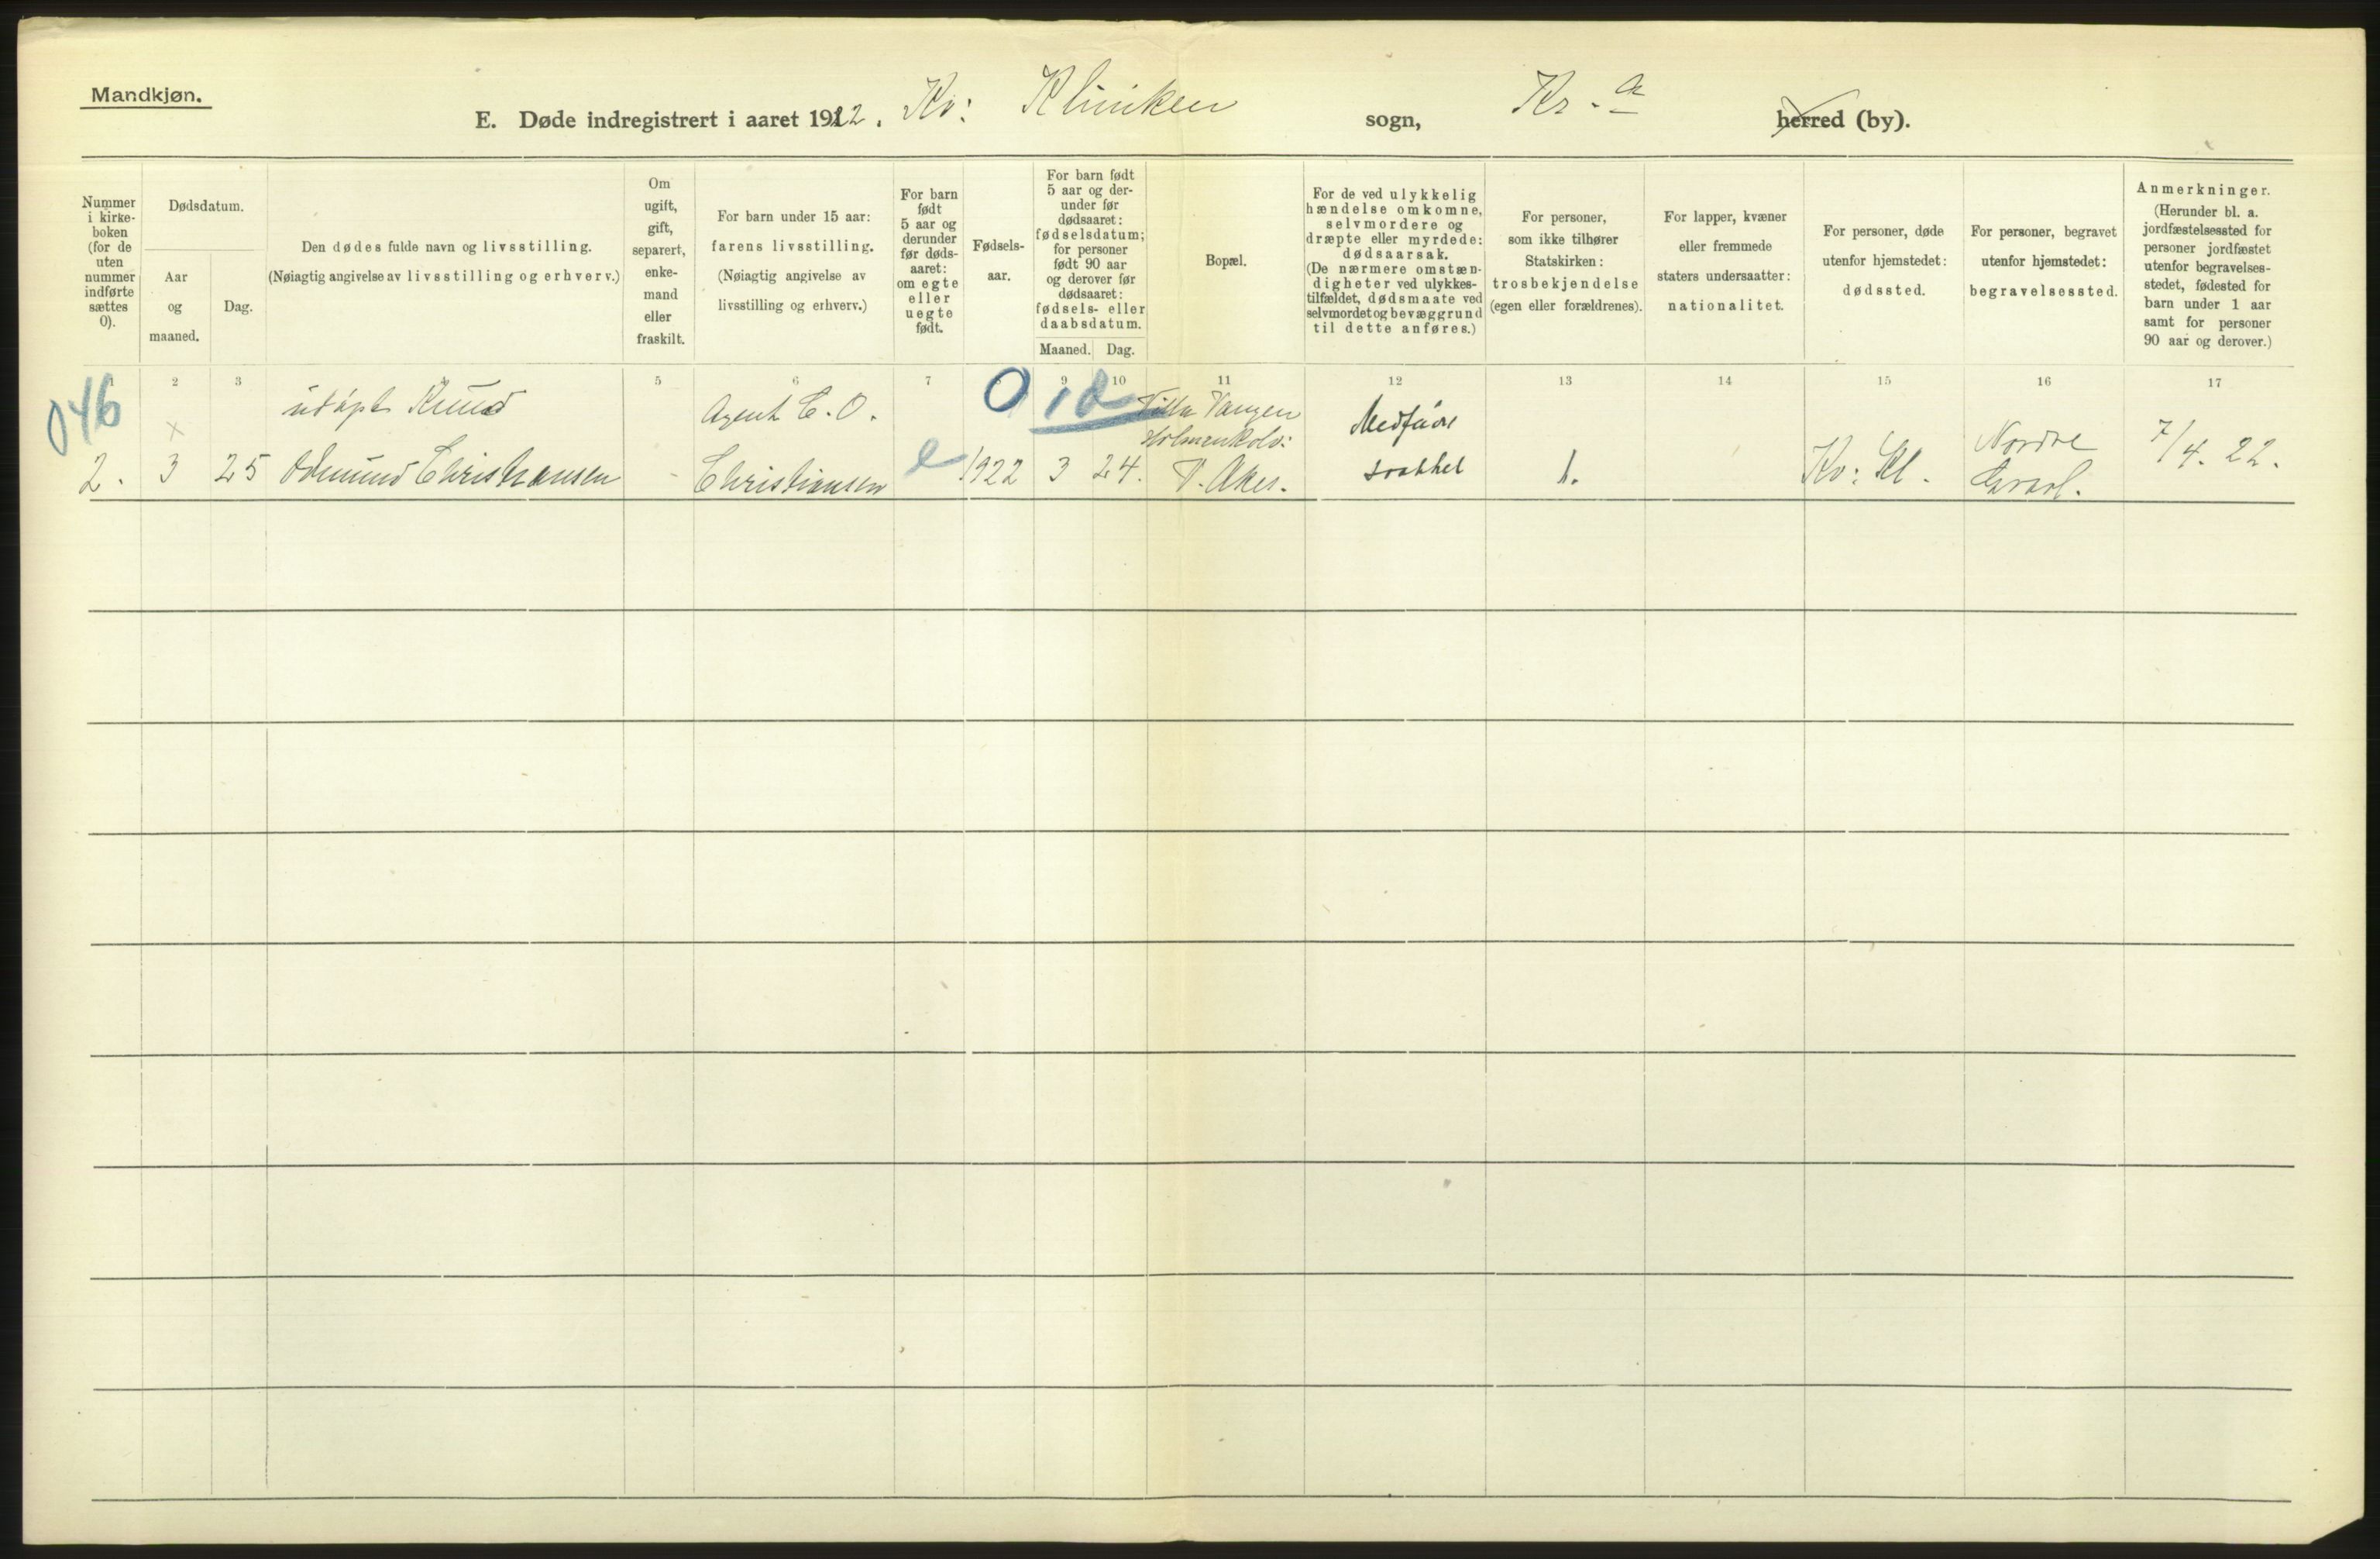 Mandkjøn.
E. Døde indregistrert i aaret 1922. Kv: Kliniken sogn, Kr.a herred (by).
Nummer i kirke-boken (for de uten nummer indførte sættes 0).
Dødsdatum.
Aar og maaned.
Dag.
Den dødes fulde navn og livsstilling.
(Nøiagtig angivelse av livsstilling og erhverv.)
Om ugift, gift, separert, enke-mand eller fraskilt.
For barn under 15 aar:
farens livsstilling.
(Nøiagtig angivelse av
livsstilling og erhverv.)
For barn født 5 aar og derunder før døds-aaret: om egte eller uegte født.
Fødsels-aar.
For barn født 5 aar og der-under før dødsaaret: fødselsdatum; for personer født 90 aar og derover før dødsaaret: fødsels- eller daabsdatum.
Maaned. Dag.
Bopæl.
For de ved ulykkelig hændelse omkomne, selvmordere og dræpte eller myrdede: dødsaarsak.
(De nærmere omstæn-digheter ved ulykkes-tilfældet, dødsmaate ved selvmordet og bevæggrund til dette anføres.)
For personer,
som ikke tilhører
Statskirken:
trosbekjendelse
(egen eller forældrenes).
For lapper, kvæner
eller fremmede
staters undersaatter:
nationalitet.
For personer, døde
utenfor hjemstedet:
dødssted.
For personer, begravet
utenfor hjemstedet:
begravelsessted.
Anmerkninger.
(Herunder bl. a.
jordfæstelsessted for
personer jordfæstet
utenfor begravelses-
stedet, fødested for
barn under 1 aar
samt for personer
90 aar og derover.)
1 2 3 5 6 7 9 10 11 12 13 14 15 16 17
046 x udøpt Knud Agent C. O. 0 10 Villa Vangen Medfødt
Holmenkolv: Nordre
2. 3 25 Odmund Christiansen - Christiansen e 1922 3 24. V. Aker. svakhet 1. Kv: Kl. Gravl. 7/4. 22.